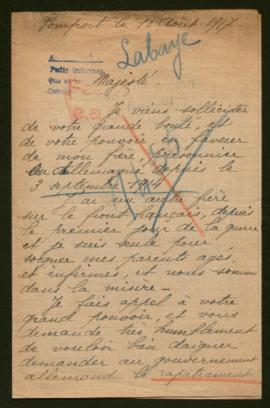 Pomport le 10 Août 1917
Labaye
Pedir informes
Majesté,
Je viens solliciter
de votre grande bonté, et
de votre pouvoir en faveur
de mon frère, prisonnier
en Allemagne depuis le
3 septembre 1914
ai un autre frère
sur le front français, depuis
le premier jour de la guerre
et je suis seule pour
soigner mes parents agés,
et infirmes, et nous sommes
dans la misère -
Je fais appel à votre
grand pouvoir, et vous
demande très humblement
de vouloir bien daigner
demander au gouvernement
allemand le rapatriement